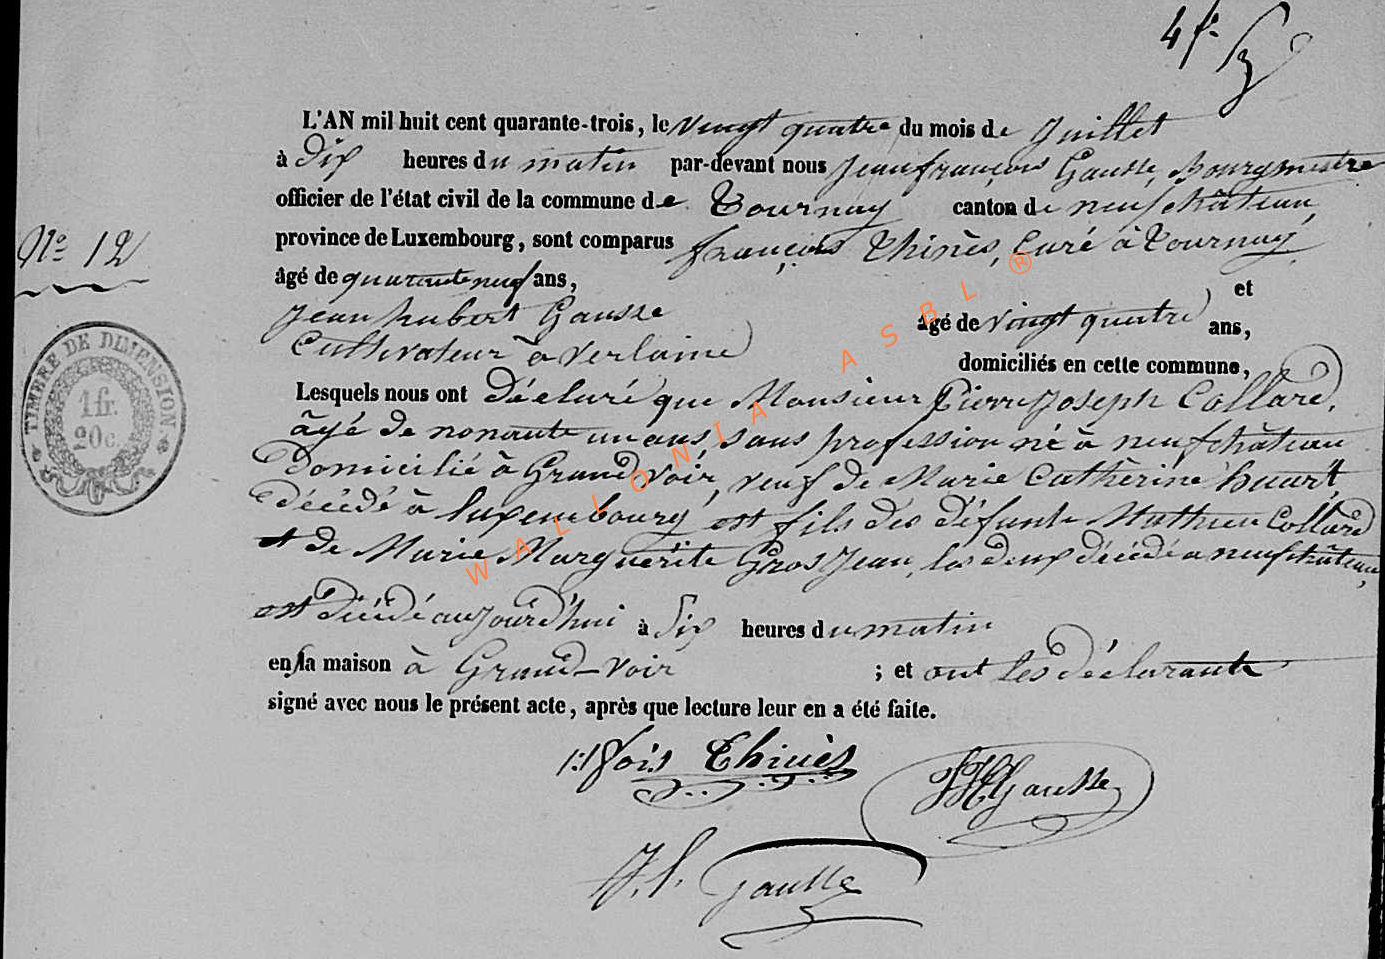 4 f.
L'AN mil huit cent quarante-trois, le vingt quatre du mois de Juillet
à Dix heures du matin par-devant nous Jean françois Gausse, Bourgmestre
officier de l'état civil de la commune de Tournay canton de neufchâteau,
province de Luxembourg, sont comparus françois Thinès, Curé à Tournay,
N° 12
âgé de quarante neuf ans,
et
Jean hubert Gausse âgé de vingt quatre ans,
Cultivateur à Verlaine domiciliés en cette commune,
Lesquels nous ont Déclaré que Monsieur Pierre Joseph Collard,
âgé de nonante un ans, sans profession né à neufchâteau
Domicilié à Grand voir, veuf de Marie Catherine huart,
décédé à luxembourg est fils des défunts Mathieu Collard
et de Marie Marguerite Gros Jean, les deux décédé a neufchâteau,
est Décédé aujourd'hui à Six heures du matin
en sa maison à Grand-voir ; et ont les déclarants
signé avec nous le présent acte, après que lecture leur en a été faite.
TIMBRE DE DIMENSION
1 fr.
20 c.
f^ois Thinès
JHGausse
J. f. Gausse
WALLONIA ASBL ®